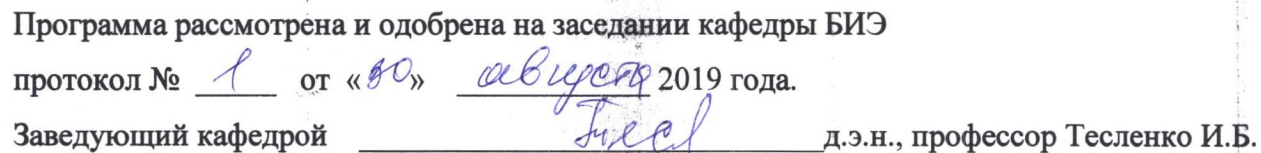 Программа рассмотрена и одобрена на заседании кафедры БИЭ
протокол № 1 от «30» августа 2019 года.
Заведующий кафедрой д.э.н., профессор Тесленко И.Б.